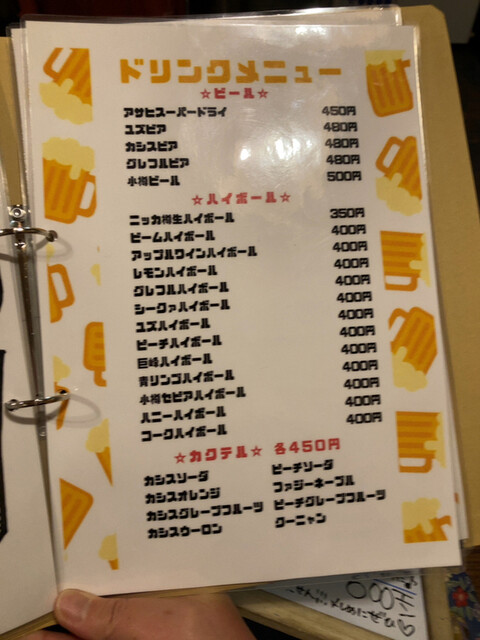 ドリンクメニュー
☆ビール☆
アサヒスーパードライ 450円
ユズビア 480円
カシスビア 480円
グレフルビア 480円
小樽ビール 500円
☆ハイボール☆
ニッカ樽生ハイボール 350円
ビームハイボール 400円
アップルワインハイボール 400円
レモンハイボール 400円
グレフルハイボール 400円
シークァハイボール 400円
ユズハイボール 400円
ピーチハイボール 400円
巨峰ハイボール 400円
青リンゴハイボール 400円
小樽セピアハイボール 400円
ハニーハイボール 400円
コークハイボール 400円
☆カクテル☆ 各450円
カシスソーダ ピーチソーダ
カシスオレンジ ファジーネーブル
カシスグレープフルーツ ピーチグレープフルーツ
カシスウーロン クーニャン